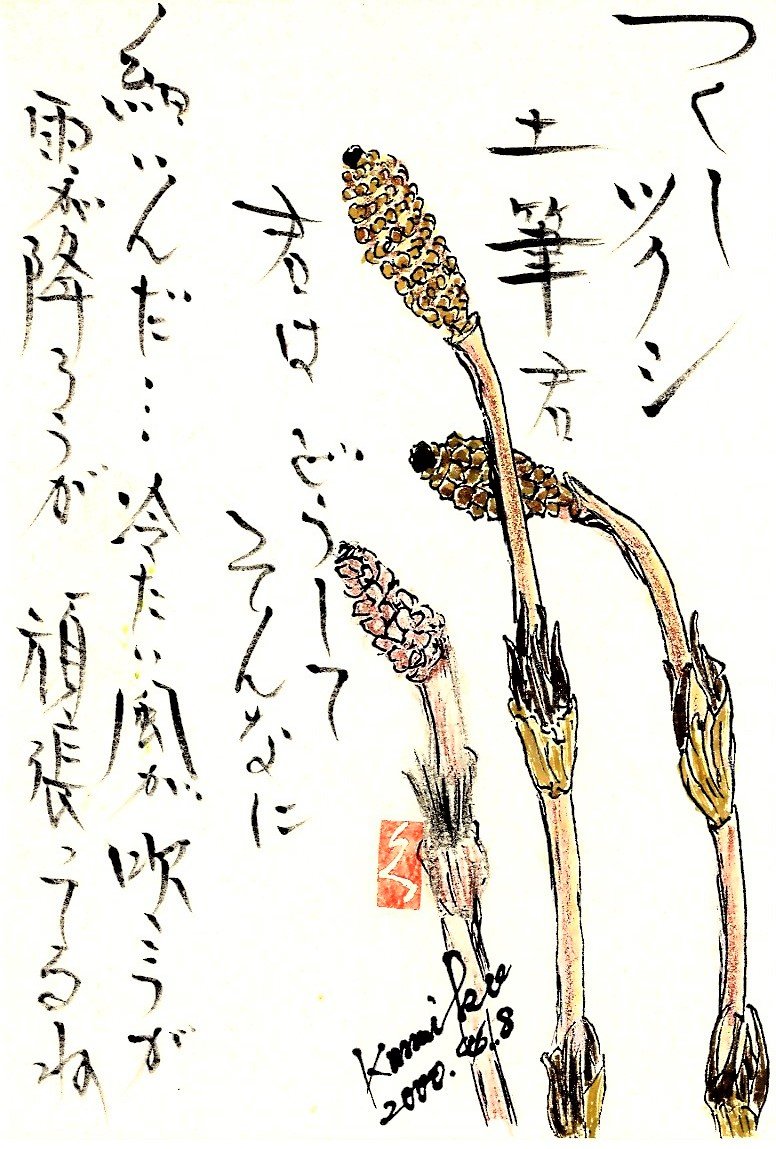 つくし
ツクシ
土筆君
君は どうして
そんなに
細いんだ… 冷たい風が 吹こうが
雨が降ろうが 頑張ってるね
Kumiko
2000.